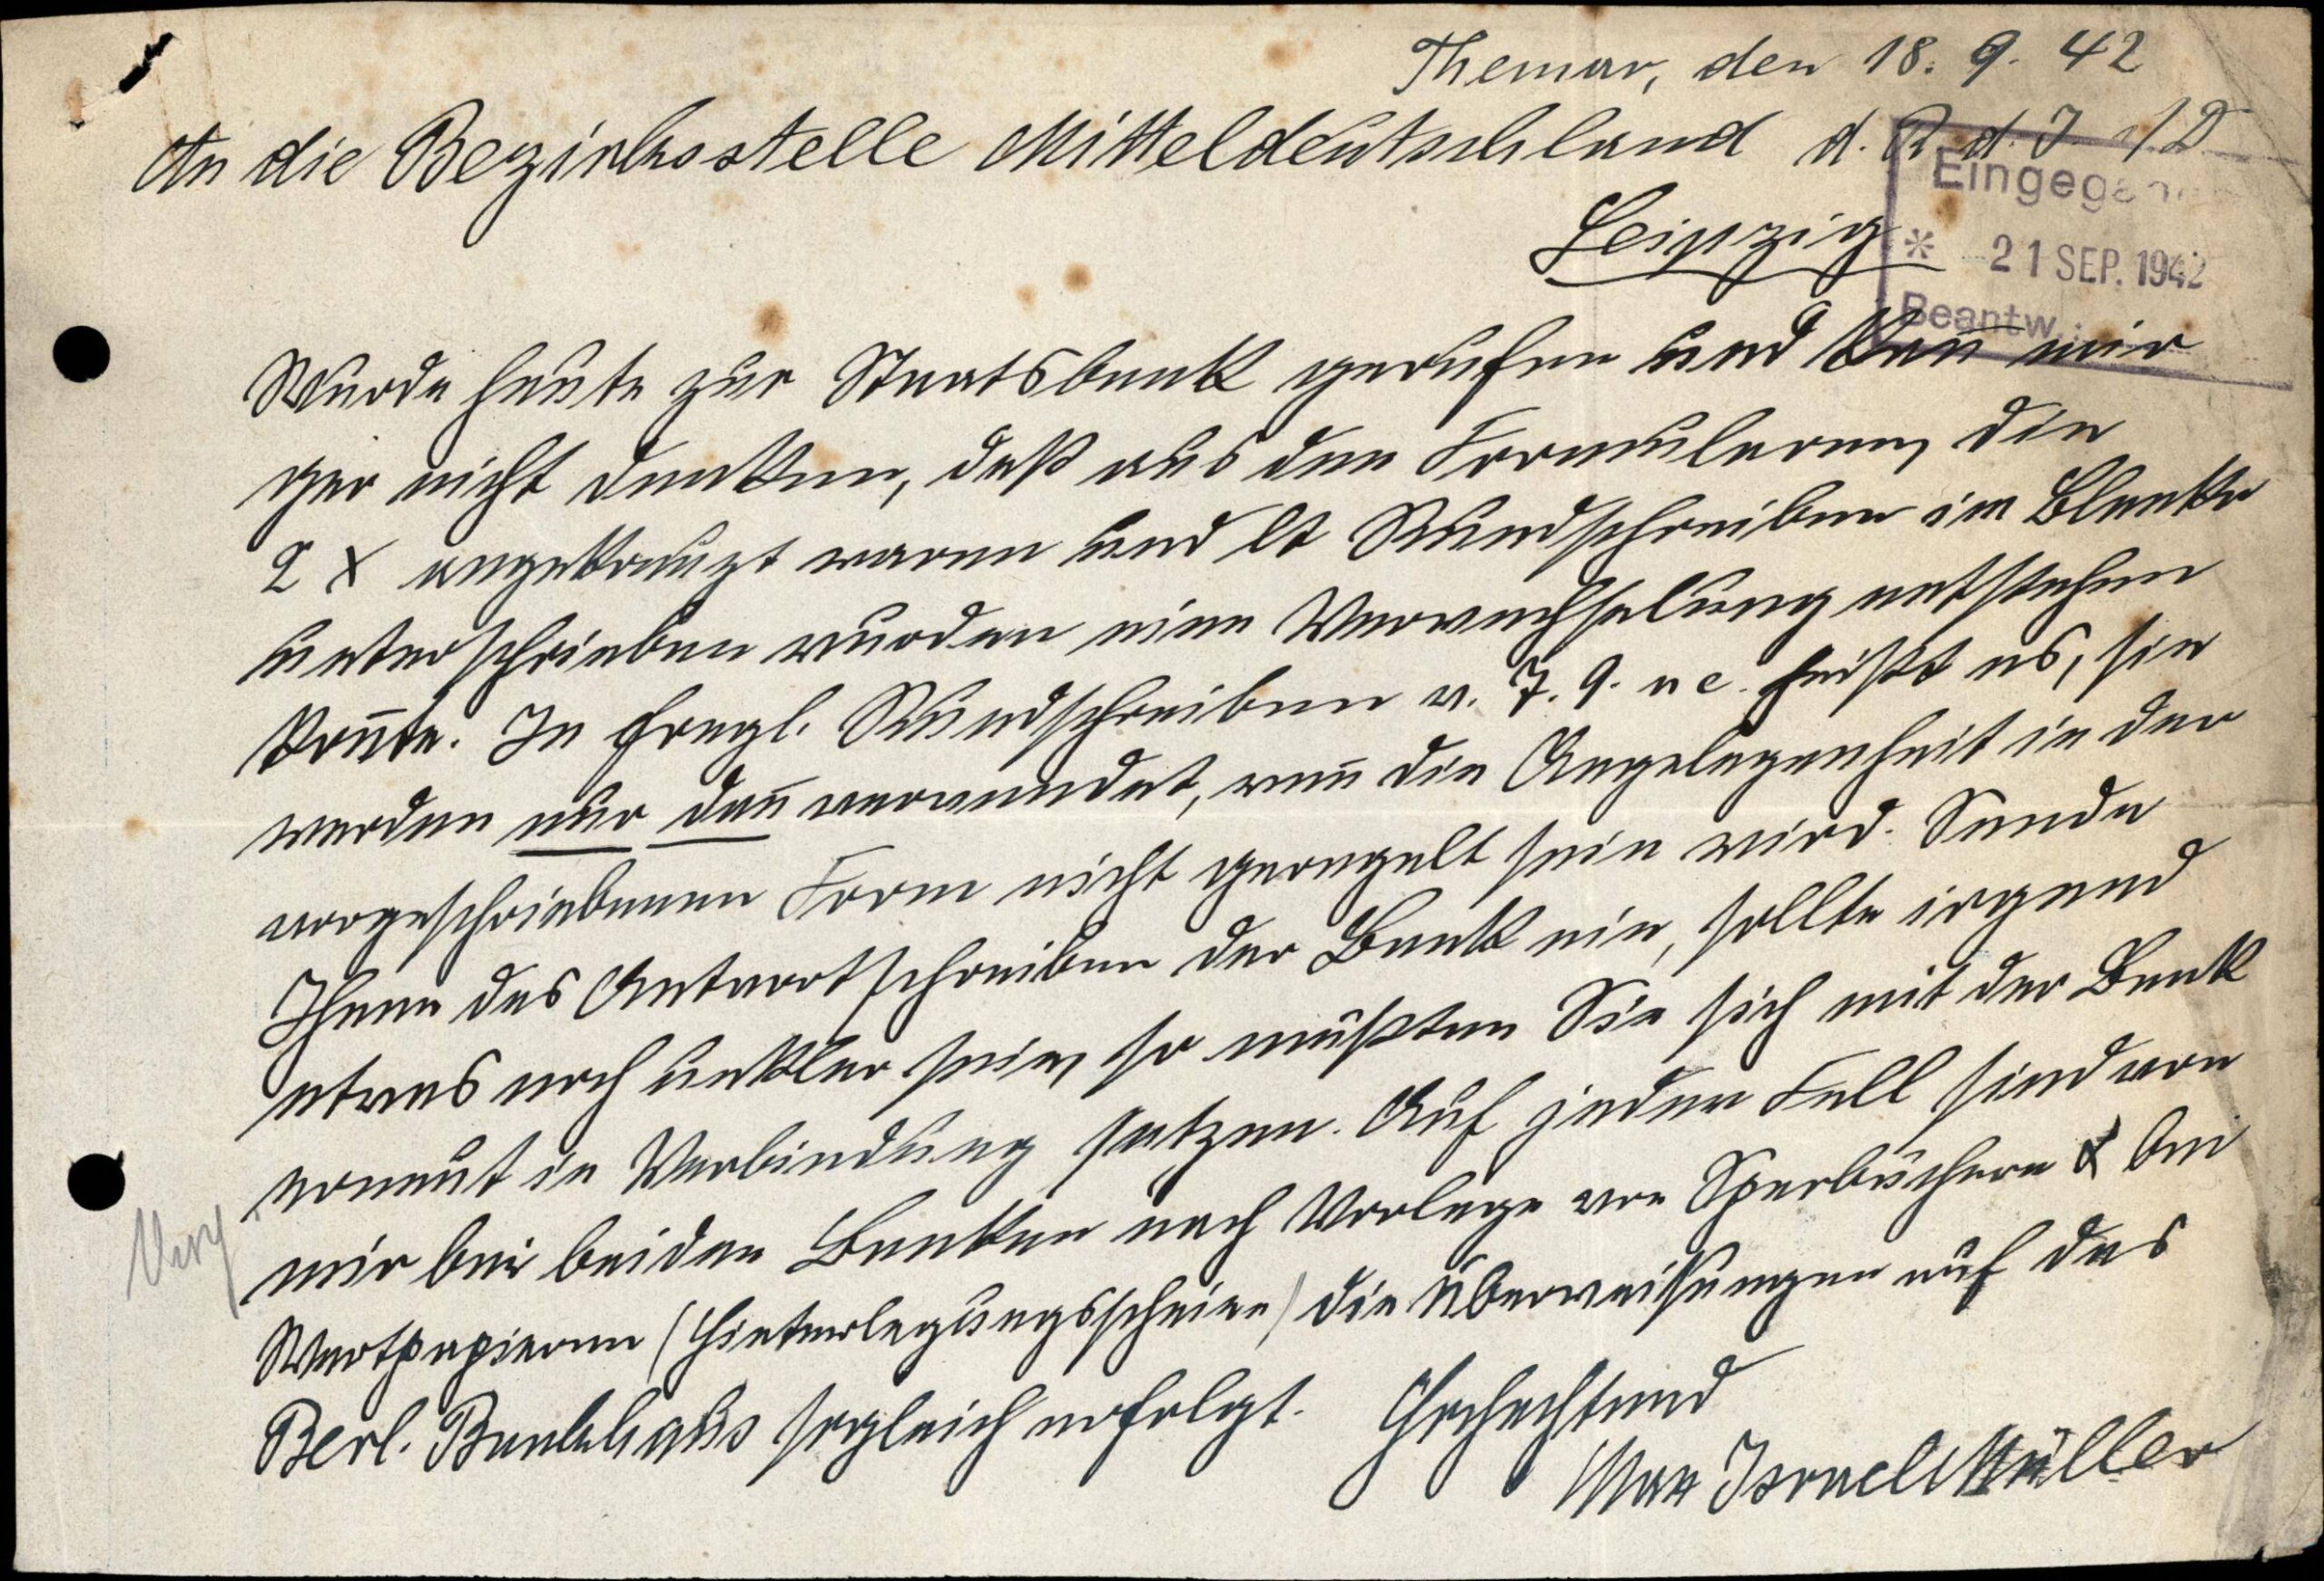 Themar, den 18. 9. 42
An die Bezirksstelle Mitteldeutschland d. R. d. J. i/D
Eingegan
Leipzig
* 21 SEP. 1942
Beantw.:
Wurde heute zur Staatsbank gerufen und kan̄ mir
gar nicht denken, daß aus den Formularen, die
2 X angekreuzt waren und lt Rundschreiben in Blanko
unterschrieben wurden eine Verwechselung entstehen
kon̄te. In fragl. Rundschreiben v. 7. 9. a c. heißt es, sie
werden nur dan̄ verwendet, wen̄ die Angelegenheit in der
vorgeschriebenen Form nicht geregelt sein wird. Sende
Ihnen das Antwortschreiben der Bank ein, sollte irgend
etwas noch unklar sein, so müßten Sie sich mit der Bank
erneut in Verbindung setzen. Auf jeden Fall sind von
mir bei beiden Banken nach Vorlage von Sparbüchern & bei
Wertpapieren (Hinterlegungsscheine) die Überweisungen auf das
Berl. Bankhaus sogleich erfolgt. Hochachtend
Max Israel Müller